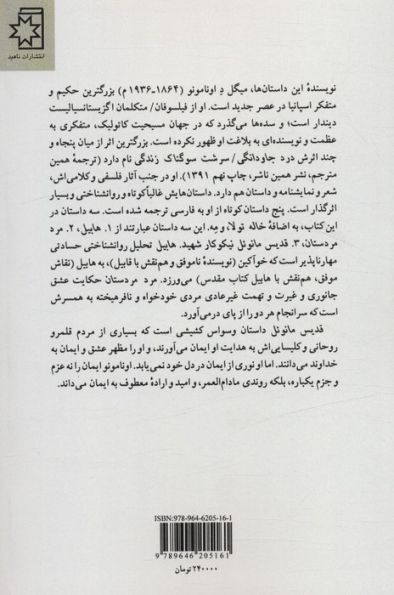 انتشارات ناهید
نویسندهٔ این داستان‌ها، میگل دِ اونامونو (۱۸۶۴-۱۹۳۶ م) بزرگترین حکیم و
متفکر اسپانیا در عصر جدید است. او از فیلسوفان/ متکلمان اگزیستانسیالیست
دیندار است؛ و سده‌ها می‌گذرد که در جهان مسیحیت کاتولیک، متفکری به
عظمت و نویسنده‌ای به بلاغت او ظهور نکرده است. بزرگترین اثر از میان پنجاه و
چند اثرش درد جاودانگی/ سرشت سوگناک زندگی نام دارد (ترجمهٔ همین
مترجم، نشر همین ناشر، چاپ نهم ۱۳۹۱). او در جنب آثار فلسفی و کلامی‌اش،
شعر و نمایشنامه و داستان هم دارد. داستان‌هایش غالباً کوتاه و روانشناختی و بسیار
اثرگذار است. پنج داستان کوتاه از او به فارسی ترجمه شده است. سه داستان در
این کتاب، به اضافهٔ خاله تولا، و مه. این سه داستان عبارتند از ۱. هابیل، ۲. مرد
مردستان، ۳. قدیس مانوئل نیکوکار شهید. هابیل تحلیل روانشناختی حسادتی
مهارناپذیر است که خوآکین (نویسندهٔ ناموفق و هم‌نقش با قابیل)، به هابیل (نقاش
موفق، هم‌نقش با هابیل کتاب مقدس) می‌ورزد. مرد مردستان حکایت عشق
جانوری و غیرت و تهمت غیرعادی مردی خودخواه و نافرهیخته به همسرش
است که سرانجام هر دو را از پای درمی‌آورد.
قدیس مانوئل داستان وسواس کشیشی است که بسیاری از مردم قلمرو
روحانی و کلیسایی‌اش به هدایت او ایمان می‌آورند، و او را مظهر عشق و ایمان به
خداوند می‌دانند. اما او نوری از ایمان در دل خود نمی‌یابد. اونامونو ایمان را نه عزم
و جزم یکباره، بلکه روندی مادام‌العمر، و امید و ارادهٔ معطوف به ایمان می‌داند.
ISBN:978-964-6205-16-1
9 789646 205161
۲۴۰۰۰۰ تومان